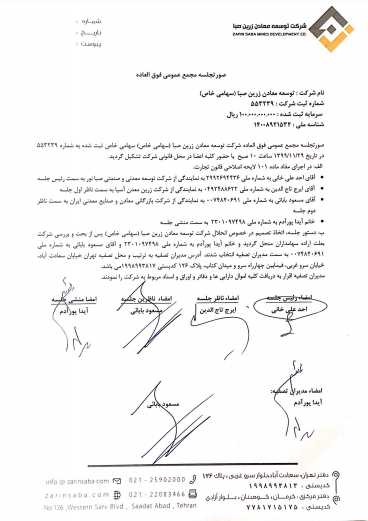 شماره :
تاریخ :
پیوست :
شرکت توسعه معادن زرین صبا
ZARIN SABA MINES DEVELOPMENT CO.
صورتجلسه مجمع عمومی فوق العاده
نام شرکت : توسعه معادن زرین صبا (سهامی خاص)
شماره ثبت شرکت : ۵۵۳۲۳۹
سرمایه ثبت شده : ۱۰۰,۰۰۰,۰۰۰,۰۰۰ ریال
شناسه ملی : ۱۴۰۰۸۹۲۱۵۳۴
صورتجلسه مجمع عمومی فوق العاده شرکت توسعه معادن زرین صبا (سهامی خاص) سهامی خاص ثبت شده به شماره ۵۵۳۲۳۹
در تاریخ ۱۳۹۹/۱۱/۲۹ ساعت ۱۰ صبح با حضور کلیه اعضا در محل قانونی شرکت تشکیل گردید.
الف: در اجرای مفاد ماده ۱۰۱ لایحه اصلاحی قانون تجارت:
آقای احد علی خانی به شماره ملی ۲۹۹۲۶۹۴۳۲۶ به نمایندگی از شرکت توسعه معدنی و صنعتی صبانور به سمت رئیس جلسه
آقای ایرج تاج الدین به شماره ملی ۰۴۹۲۴۸۸۶۲۲ به نمایندگی از شرکت زرین معدن آسیا به سمت ناظر اول جلسه
آقای مسعود بابائی به شماره ملی ۰۰۷۴۸۴۰۶۹۱ به نمایندگی از شرکت بازرگانی معادن و صنایع معدنی ایران به سمت ناظر
دوم جلسه
خانم آیدا پورآدم به شماره ملی ۲۳۰۱۰۹۷۴۹۸ به سمت منشی جلسه
ب: دستور جلسه، اتخاذ تصمیم در خصوص انحلال شرکت توسعه معادن زرین صبا (سهامی خاص) پس از بحث و بررسی شرکت
بعلت اراده سهامداران منحل گردید و خانم آیدا پورآدم به شماره ملی ۲۳۰۱۰۹۷۴۹۸ و آقای مسعود بابائی به شماره ملی
۰۰۷۴۸۴۰۶۹۱ به سمت مدیران تصفیه انتخاب شدند. آدرس مدیران تصفیه به ترتیب و محل تصفیه تهران خیابان سعادت آباد،
خیابان سرو غربی، فیمابین چهارراه سرو و میدان کتاب، پلاک ۱۲۶ کدپستی ۱۹۹۸۹۹۳۸۱۳ می باشد.
مدیران تصفیه اقرار به دریافت کلیه اموال دارایی ها و دفاتر و اوراق و اسناد مربوط به شرکت را نمودند.
امضاء رئیس جلسه
احد علی خانی
امضاء ناظر جلسه
ایرج تاج الدین
امضاء ناظرین جلسه
مسعود بابائی
امضا منشی جلسه
آیدا پورآدم
امضاء مدیران تصفیه:
آیدا پورآدم
مسعود بابائی
دفتر تهران: سعادت آباد، بلوار سرو غربی، پلاک ۱۲۶
کدپستی : ۱۹۹۸۹۹۳۸۱۳
دفتر مرکزی: کرمان، کوهبنان، بلوار آزادی
کدپستی : ۷۷۸۱۷۱۵۱۷۵
021 - 25902000
021 - 22083466
info @ zarinsaba.com
zarinsaba.com
No 126 ,Western Sarv Blvd , Saadat Abad , Tehran